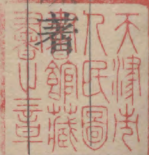 天津市
人民圖
書館藏
書之章
著